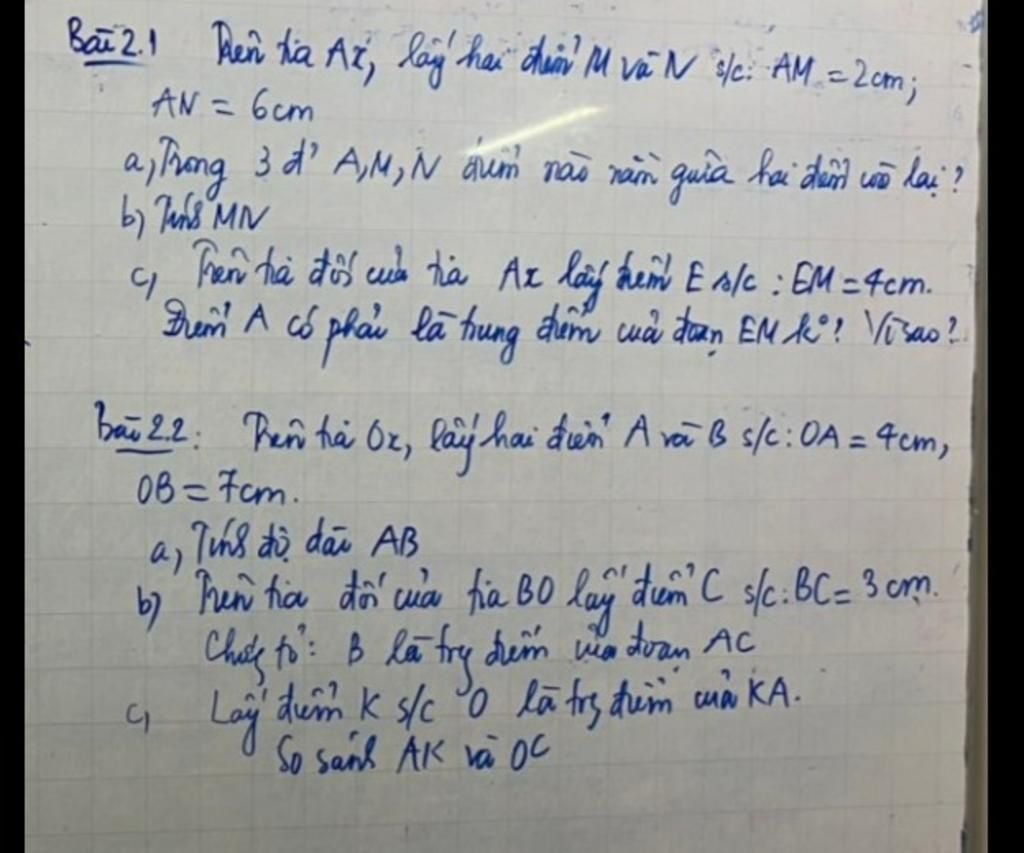 Bài 2.1 Trên tia Ax, lấy hai điểm M và N s/c: AM = 2cm;
AN = 6cm
a, Trong 3 đ' A, M, N điểm nào nằm giữa hai điểm còn lại?
b) Tính MN
c, Trên tia đối của tia Ax lấy điểm E s/c : EM = 4cm.
Điểm A có phải là trung điểm của đoạn EM k°? Vì sao?
Bài 2.2: Trên tia Ox, lấy hai điểm A và B s/c: OA = 4cm,
OB = 7cm.
a, Tính độ dài AB
b) Trên tia đối của tia BO lấy điểm C s/c: BC = 3cm.
Chứng tỏ: B là trg điểm của đoạn AC
c, Lấy điểm K s/c O là trg điểm của KA.
So sánh AK và OC